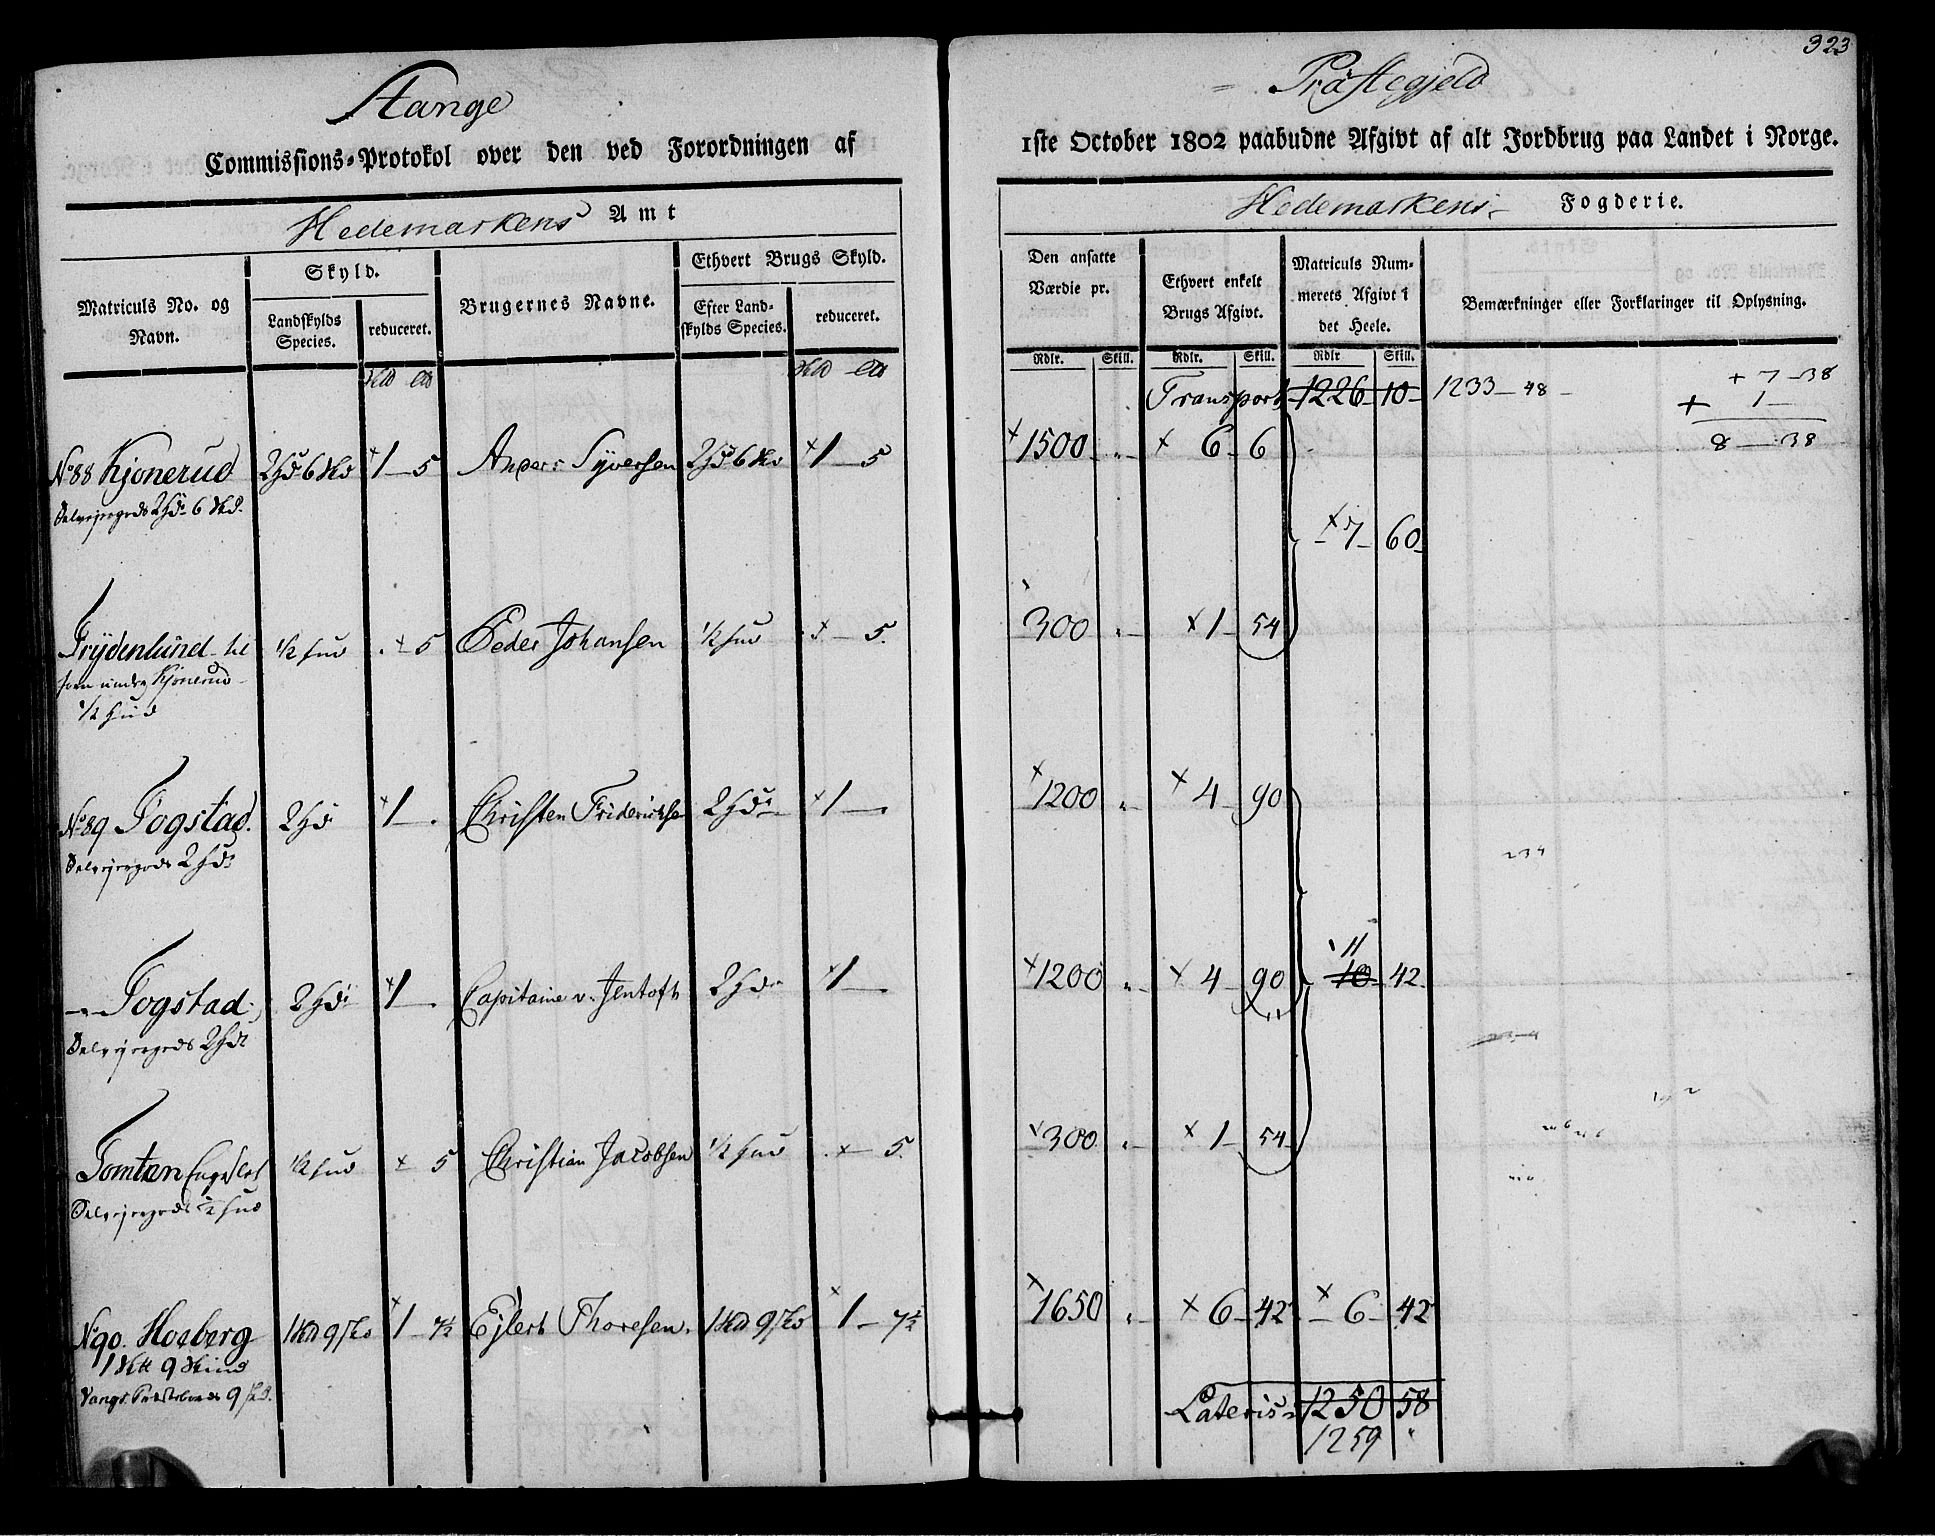 323
Stange Præstegjeld
Commissions-Protokol over den ved Forordningen af 1ste October 1802 paabudne Afgivt af alt Jordbrug paa Landet i Norge.
Hedemarkens Amt
Hedemarkens Fogderie.
Matriculs No. og Navn.
Skyld.
Landskylds Species.
reduceret.
Brugernes Navne.
Ethvert Brugs Skyld.
Efter Landskylds Species.
reduceret.
Den ansatte Værdie pr.
Ethvert enkelt Brugs Afgivt.
Matriculs Nummerets Afgivt i det Heele.
Bemærkninger eller Forklaringer til Oplysning.
Rdlr. Skill. Rdlr. Skill. Rdlr Skill.
Transport 1226 10 1233 - 48 + 7 - 38
+ 1 -
8 - 38
No 88 Kjonerud 2 Hd 6 Skd 1 - 5 Anders Syversen 2 Hd 6 Skd 1 - 5 1500 " 6 6
Selvejergods 2 Hdr 6 Skd.
7 60
Frydenlund 1/2 Hud 5 Peder Johansen 1/2 Hud 5 300 " 1 54
under Kjonerud
1/2 Hud
No 89 Fogstad. 2 Hd 1 - Christen Fridericksen 2 Hdr 1 - 1200 " 4 90
Selvejergods 2 Hdr
234
- " - Fogstad 2 Hdr 1 - Capitaine v. Jentoft 2 Hdr 1 - 1200 " 4 90 10 42
11
Selvejergods 2 Hdr
Tomten 1/2 Hud 5 Christian Jacobsen 1/2 Hud 5. 300 " 1 54
Selvejergods 1/2 Hud
N 90. Hoeberg 1 Skd 9 Skd 1 - 7 1/2 Ejlert Thoresen. 1 Skd 9 Skd 1 - 7 1/2 1650 " 6 42 6 42
9 Skind
Vangs 9 Skd.
Lateris 1250 58
1259 "